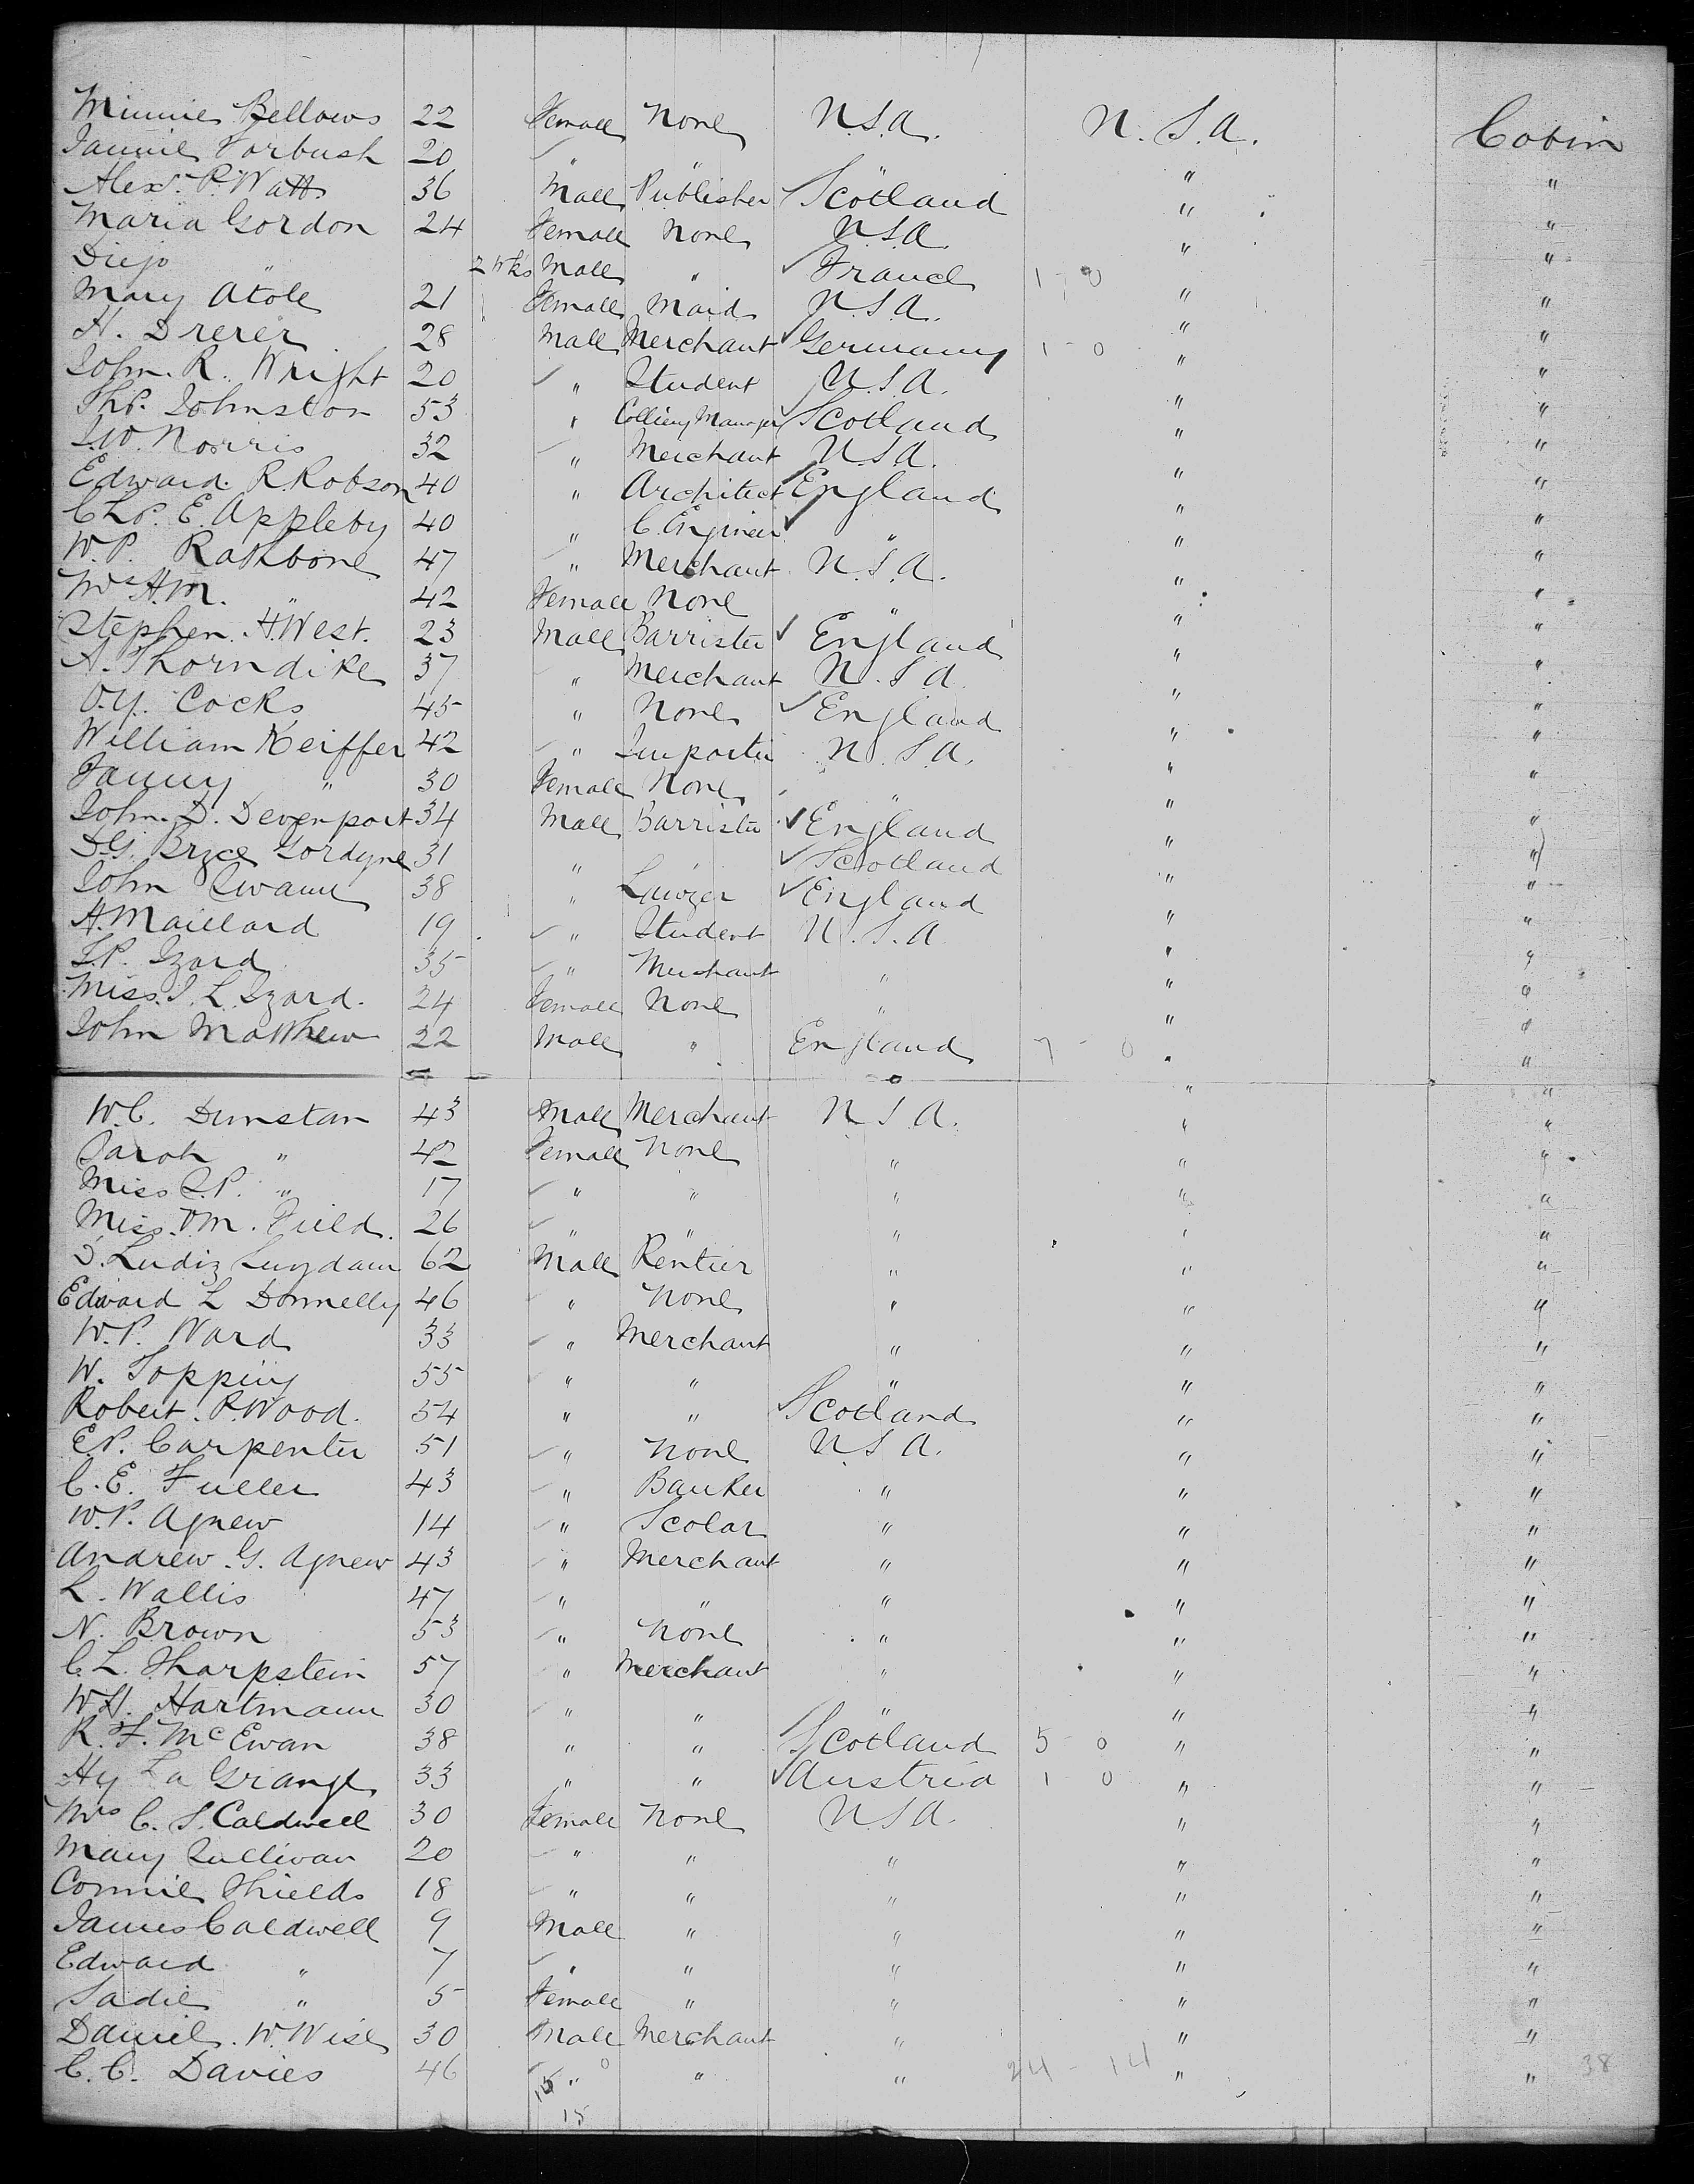 Minnie Bellows 22 Female None U.S.A. U.S.A. Cabin
Fannie Forbush 20 " " " " "
Alexr. P. Watt 36 Male Publisher Scotland " "
Maria Gordon 24 Female None U.S.A. " "
Diejo " 2 Wks Male " France 1 - 0 " "
Mary Atole 21 Female Maid U.S.A. " "
H. Drerer 28 Male Merchant Germany 1 - 0 " "
John. R. Wright 20 " Student U.S.A. " "
Johnston 53 " Colliery Manager Scotland " "
Norris 32 " Merchant U.S.A. " "
Edward. R. Robson 40 " Architect England " "
Chs. E. Appleby 40 " C. Engineer " " "
W.P. Rathbone 47 " Merchant U.S.A. " "
Mrs H.M. " 42 Female None " " "
Stephen. H. West. 23 Male Barrister England " "
A. Thorndike 37 " Merchant U.S.A. " "
O.Y. Cocks 45 " None England " "
William Keiffer 42 " Importer U.S.A. " "
Fanny " 30 Female None " " "
John. D. Devenport 34 Male Barrister England " "
D.G. Bryce Gordyne 31 " " Scotland " "
John Swann 38 " Lawyer England " "
A. Maillard 19 " Student U.S.A. " "
S.P. Izard 35 " Merchant " " "
Miss. I. L. Izard. 24 Female None " " "
John Matthew 22 Male " England 7 - 0 " "
W.C. Dunstan 43 Male Merchant U.S.A. " "
Sarah " 42 Female None " " "
Miss S.P. " 17 " " " " "
Miss. M. Field. 26 " " " " "
62 Male Rentier " " "
Edward L Donnelly 46 " None " " "
W.P. Ward 33 " Merchant " " "
W. Topping 55 " " " " "
Robert. P. Wood. 54 " " Scotland " "
E.P. Carpenter 51 " None U.S.A. " "
C.E. Fuller 43 " Banker " " "
W.P. Agnew 14 " Scolar " " "
Andrew. G. Agnew 43 " Merchant " " "
L. Wallis 47 " " " " "
N. Brown 53 " None " " "
C.L. Tharpstein 57 " Merchant " " "
W.H. Hartmann 30 " " " " "
R.F. McEwan 38 " " Scotland 5 - 0 " "
Hy La Grange 33 " " Austria 1 0 " "
Mrs C.S. Caldwell 30 Female None U.S.A. " "
Mary Sullivan 20 " " " " "
Connie Shields 18 " " " " "
James Caldwell 9 Male " " " "
Edward " 7 " " " " "
Sadie " 5 Female " " " "
Daniel. W. Wise 30 Male Merchant " " "
C.C. Davies 46 " " " 24 - 14 " " 38
15
15